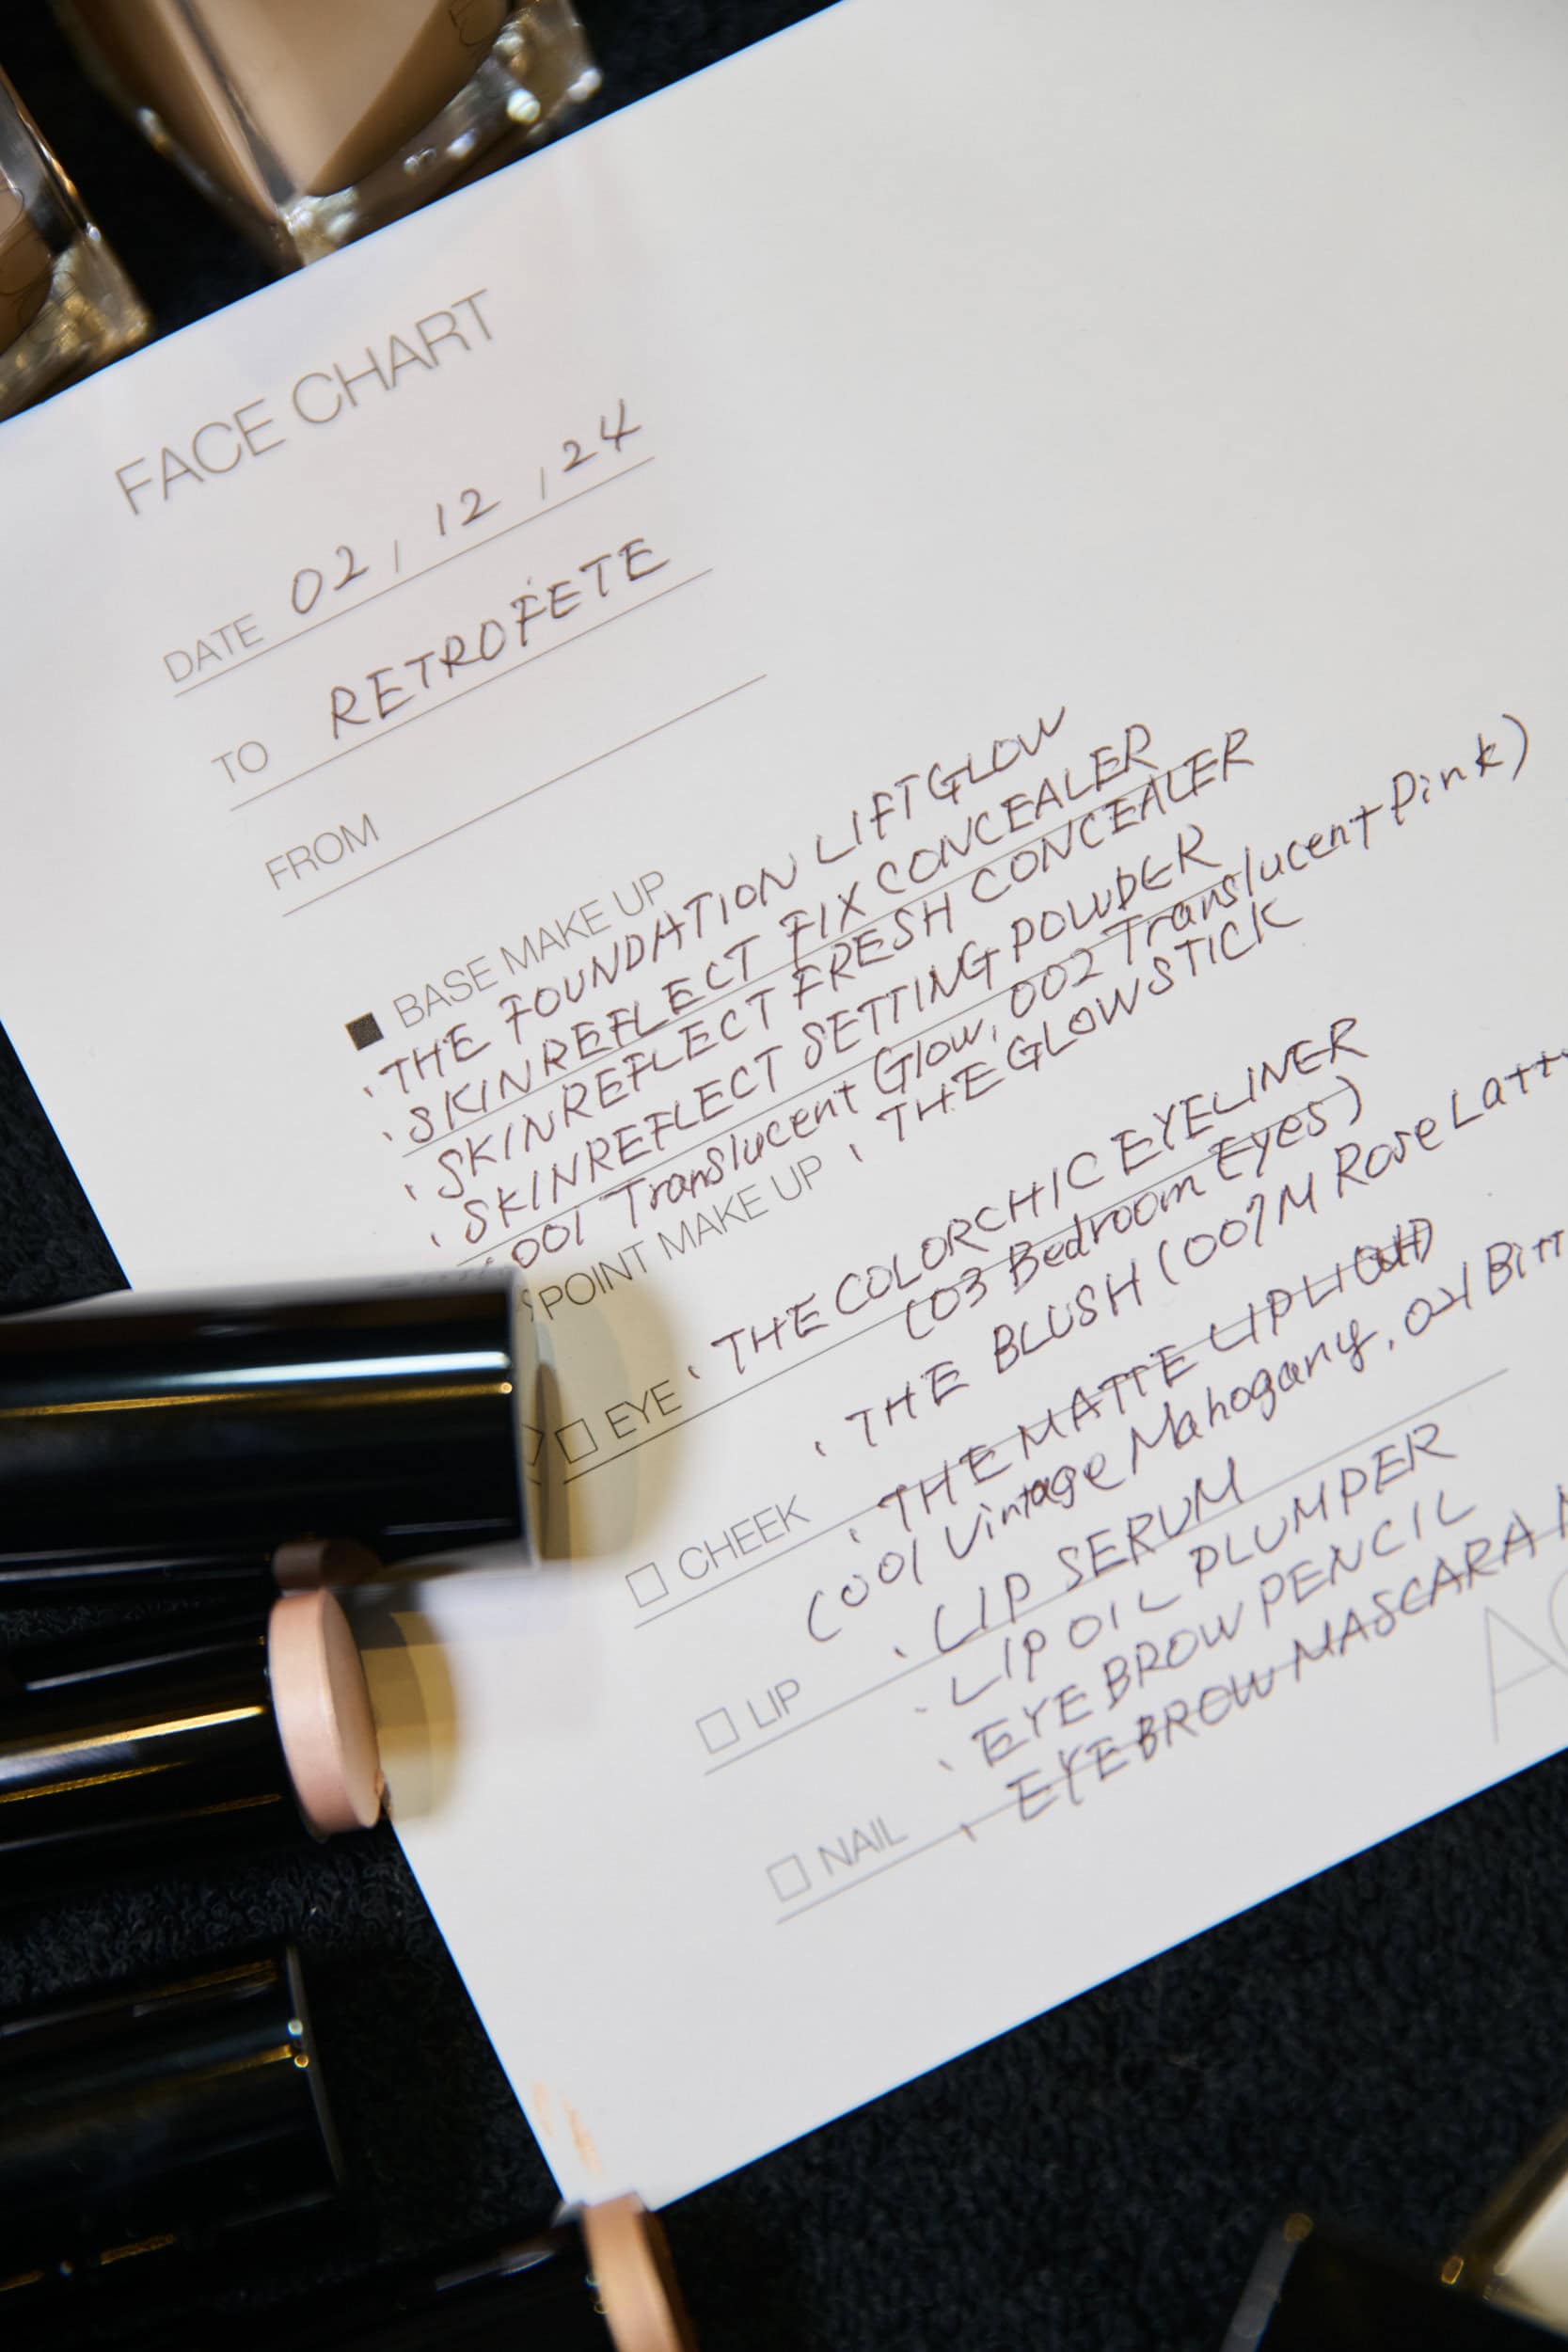 FACE CHART
DATE 02 / 12 / 24
TO RETROFETE
FROM
■ BASE MAKE UP
· THE FOUNDATION LIFTGLOW
· SKINREFLECT FIX CONCEALER
· SKINREFLECT FRESH CONCEALER
· SKINREFLECT SETTING POWDER
(001 Translucent Glow, 002 Translucent Pink)
· THE GLOW STICK
POINT MAKE UP
□ EYE · THE COLORCHIC EYELINER
(03 Bedroom Eyes)
· THE BLUSH (007M Rose Latt
□ CHEEK · THE MATTE LIP LIQUID
(001 Vintage Mahogany, 021 Bitt
· LIP SERUM
□ LIP · LIP OIL PLUMPER
· EYEBROW PENCIL
□ NAIL · EYEBROW MASCARA